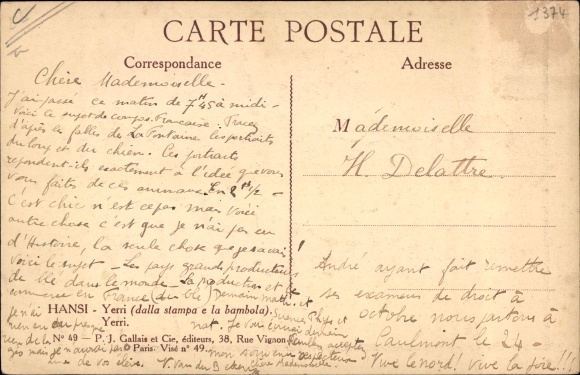 1374
CARTE POSTALE
Correspondance
Adresse
Chère Mademoiselle -
J'ai passé ce matin de 7H45 à midi -
Voici le sujet de comp. Française. Tracez
d'après les fables de La Fontaine les portraits
du loup et du chien. Ces portraits
répondent-ils exactement à l'idée que vous
vous faites de ces animaux. En 2H 1/2 -
C'est chic n'est ce pas mais voici
autre chose c'est que je n'ai pas eu
d'Histoire, la seule chose que je savais!
Voici le sujet - Les pays grands producteurs
de blé dans le monde - La production et le
commerce en France (du blé) Demain matin
je n'ai
rien
HANSI - Yerri (dalla stampa e la bambola).
Yerri.
Nº 49 — P. J. Gallais et Cie, éditeurs, 38, Rue Vignon
Paris. Visé nº 49.
Sciences Phys et
nat. Je vous
Veuillez accepter
mon souvenir respectueux
chère Mademoiselle.
de vos élèves.
Mademoiselle
H. Delattre
André ayant fait remettre
ses examens de droit à
octobre nous partons à
Caulmont le 24 -
Vive le nord! Vive la joie!!!